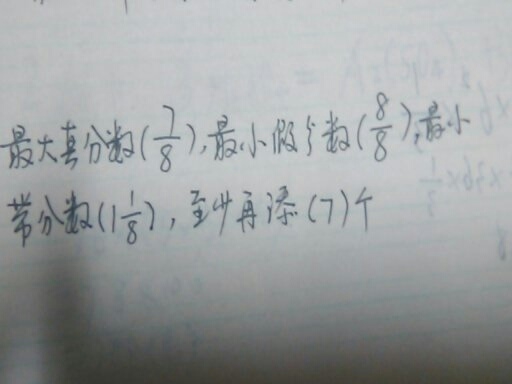 最大真分数(7/8),最小假分数(8/8),最小
带分数(1 1/8),至少再添(7)个